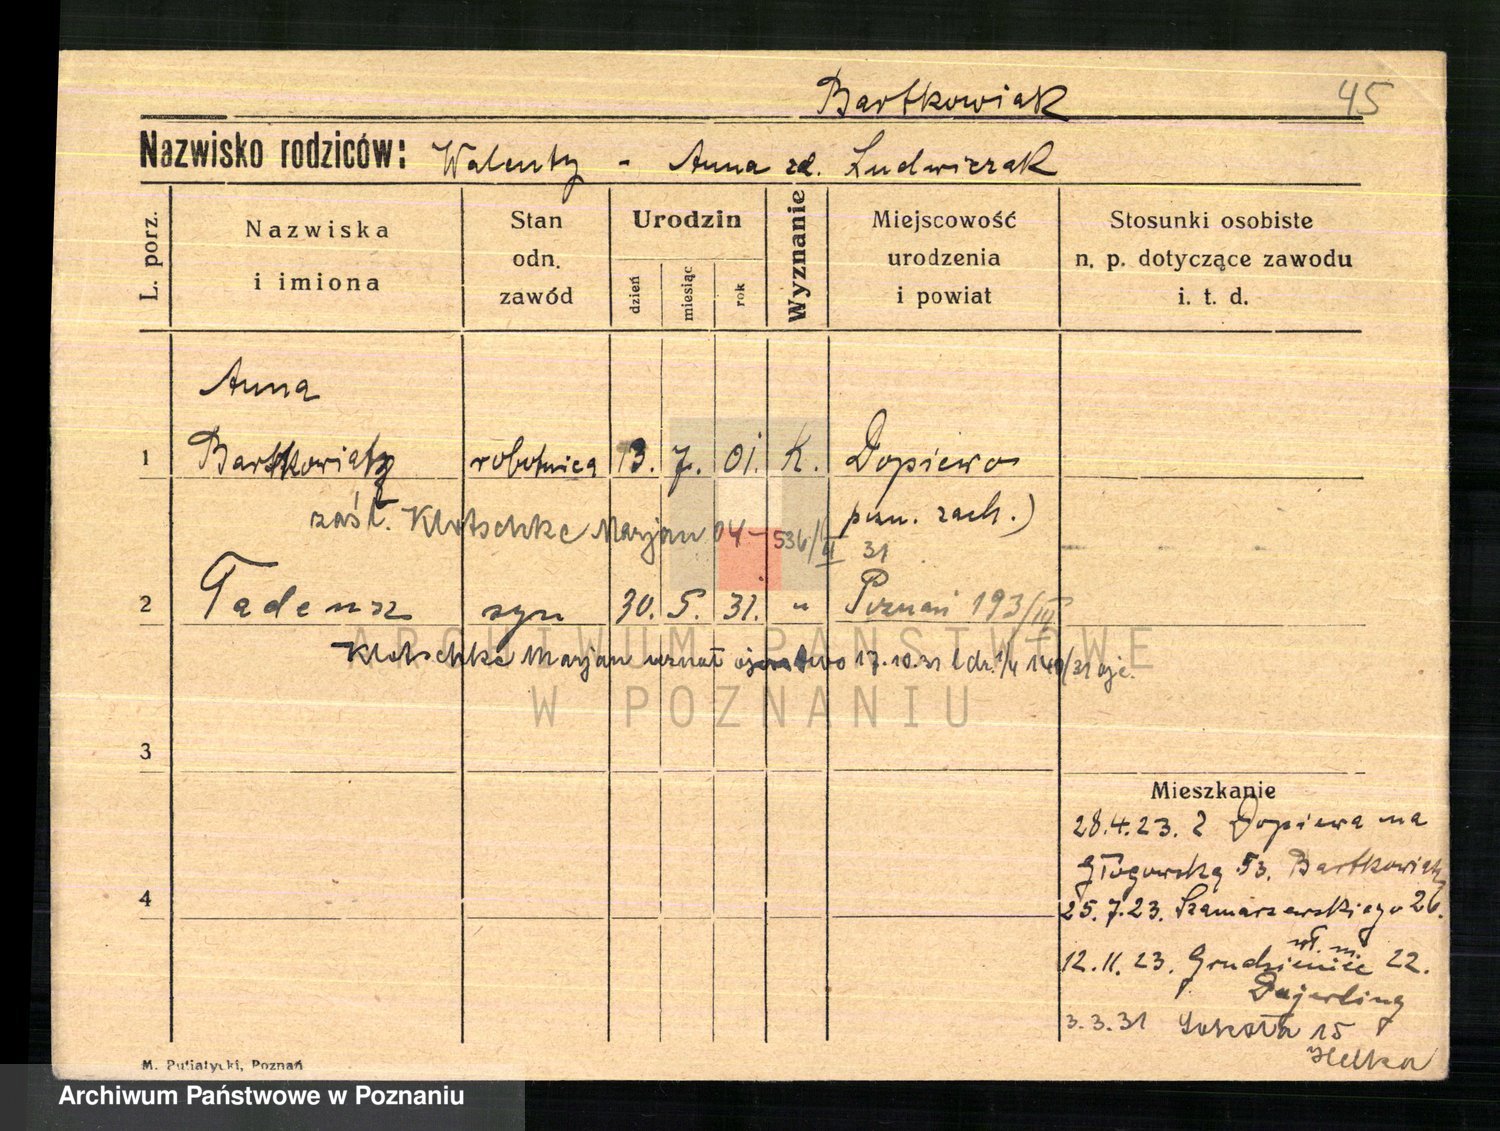 Bartkowiak 45
Nazwisko rodziców: Walenty - Anna zd. Ludwiczak
L. porz.
Nazwiska
i imiona
Stan
odn.
zawód
Urodzin
dzień
miesiąc
rok
Wyznanie
Miejscowość
urodzenia
i powiat
Stosunki osobiste
n. p. dotyczące zawodu
i. t. d.
Anna
1 Bartkowiak robotnica 13. 7. 01. K. Dopiewo
zaśl. Klotschke Marjan 04 - 536/II 31
pozn. zach.)
2 Tadeusz syn 30. 5. 31. " Poznań 193/III
Klotschke Marjan uznał ojcostwo 17.10.31
3
4
Mieszkanie
28.4.23. z Dopiewa na
Głogowską 53. Bartkowiak
25.7.23. Szamarzewskiego 26.
wł. m.
12.11.23. Grudzieniec 22.
Dajerling
3.3.31 15
M. Putiatycki, Poznań
ARCHIWUM PAŃSTWOWE
W POZNANIU
Archiwum Państwowe w Poznaniu